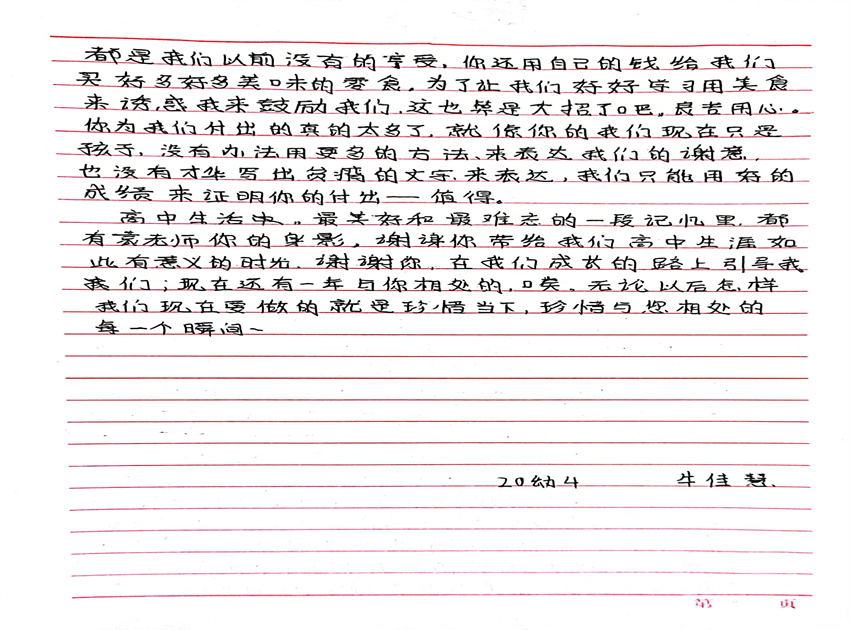 都是我们以前没有的享受，你还用自己的钱给我们
买好多好多美味的零食，为了让我们好好学习用美食
来诱惑我来鼓励我们，这也算是大招了吧。良苦用心。
你为我们付出的真的太多了，就像你的我们现在只是
孩子，没有办法用更多的方法、来表达我们的谢意，
也没有才华写出华丽的文字、来表达，我们只能用好的
成绩来证明你的付出——值得。
高中生活中。最美好和最难忘的一段记忆里，都
有袁老师你的身影，谢谢你带给我们高中生涯如
此有意义的时光，谢谢你，在我们成长的路上引导我
我们；现在还有一年与你相处的，唉。无论以后怎样
我们现在要做的就是珍惜当下，珍惜与您相处的
每一个瞬间~
20幼4 牛佳慧.
第 页